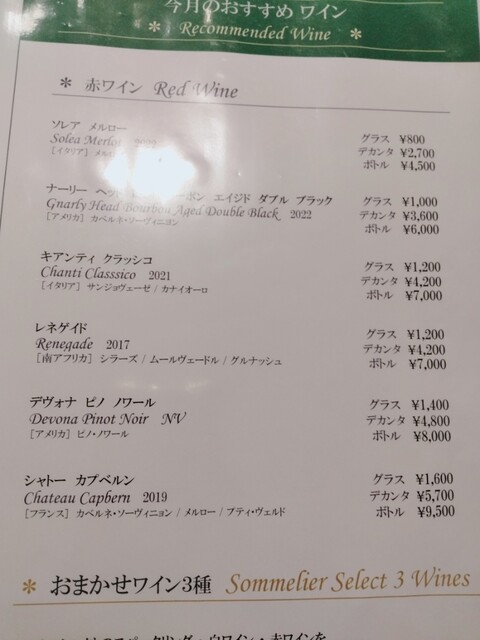 今月のおすすめ ワイン
* Recommended Wine *
* 赤ワイン Red Wine
ソレア メルロー
グラス ¥800
Solea Merlot
デカンタ ¥2,700
[イタリア]
ボトル ¥4,500
ナーリー エイジド ダブル ブラック
グラス ¥1,000
Gnarly Head Bourbon Aged Double Black 2022
デカンタ ¥3,600
[アメリカ] カベルネ・ソーヴィニヨン
ボトル ¥6,000
キアンティ クラッシコ
グラス ¥1,200
Chanti Classsico 2021
デカンタ ¥4,200
[イタリア] サンジョヴェーゼ / カナイオーロ
ボトル ¥7,000
レネゲイド
グラス ¥1,200
Renegade 2017
デカンタ ¥4,200
[南アフリカ] シラーズ / ムールヴェードル / グルナッシュ
ボトル ¥7,000
デヴォナ ピノ ノワール
グラス ¥1,400
Devona Pinot Noir NV
デカンタ ¥4,800
[アメリカ] ピノ・ノワール
ボトル ¥8,000
シャトー カプベルン
グラス ¥1,600
Chateau Capbern 2019
デカンタ ¥5,700
[フランス] カベルネ・ソーヴィニョン / メルロー / プティ・ヴェルド
ボトル ¥9,500
* おまかせワイン3種 Sommelier Select 3 Wines